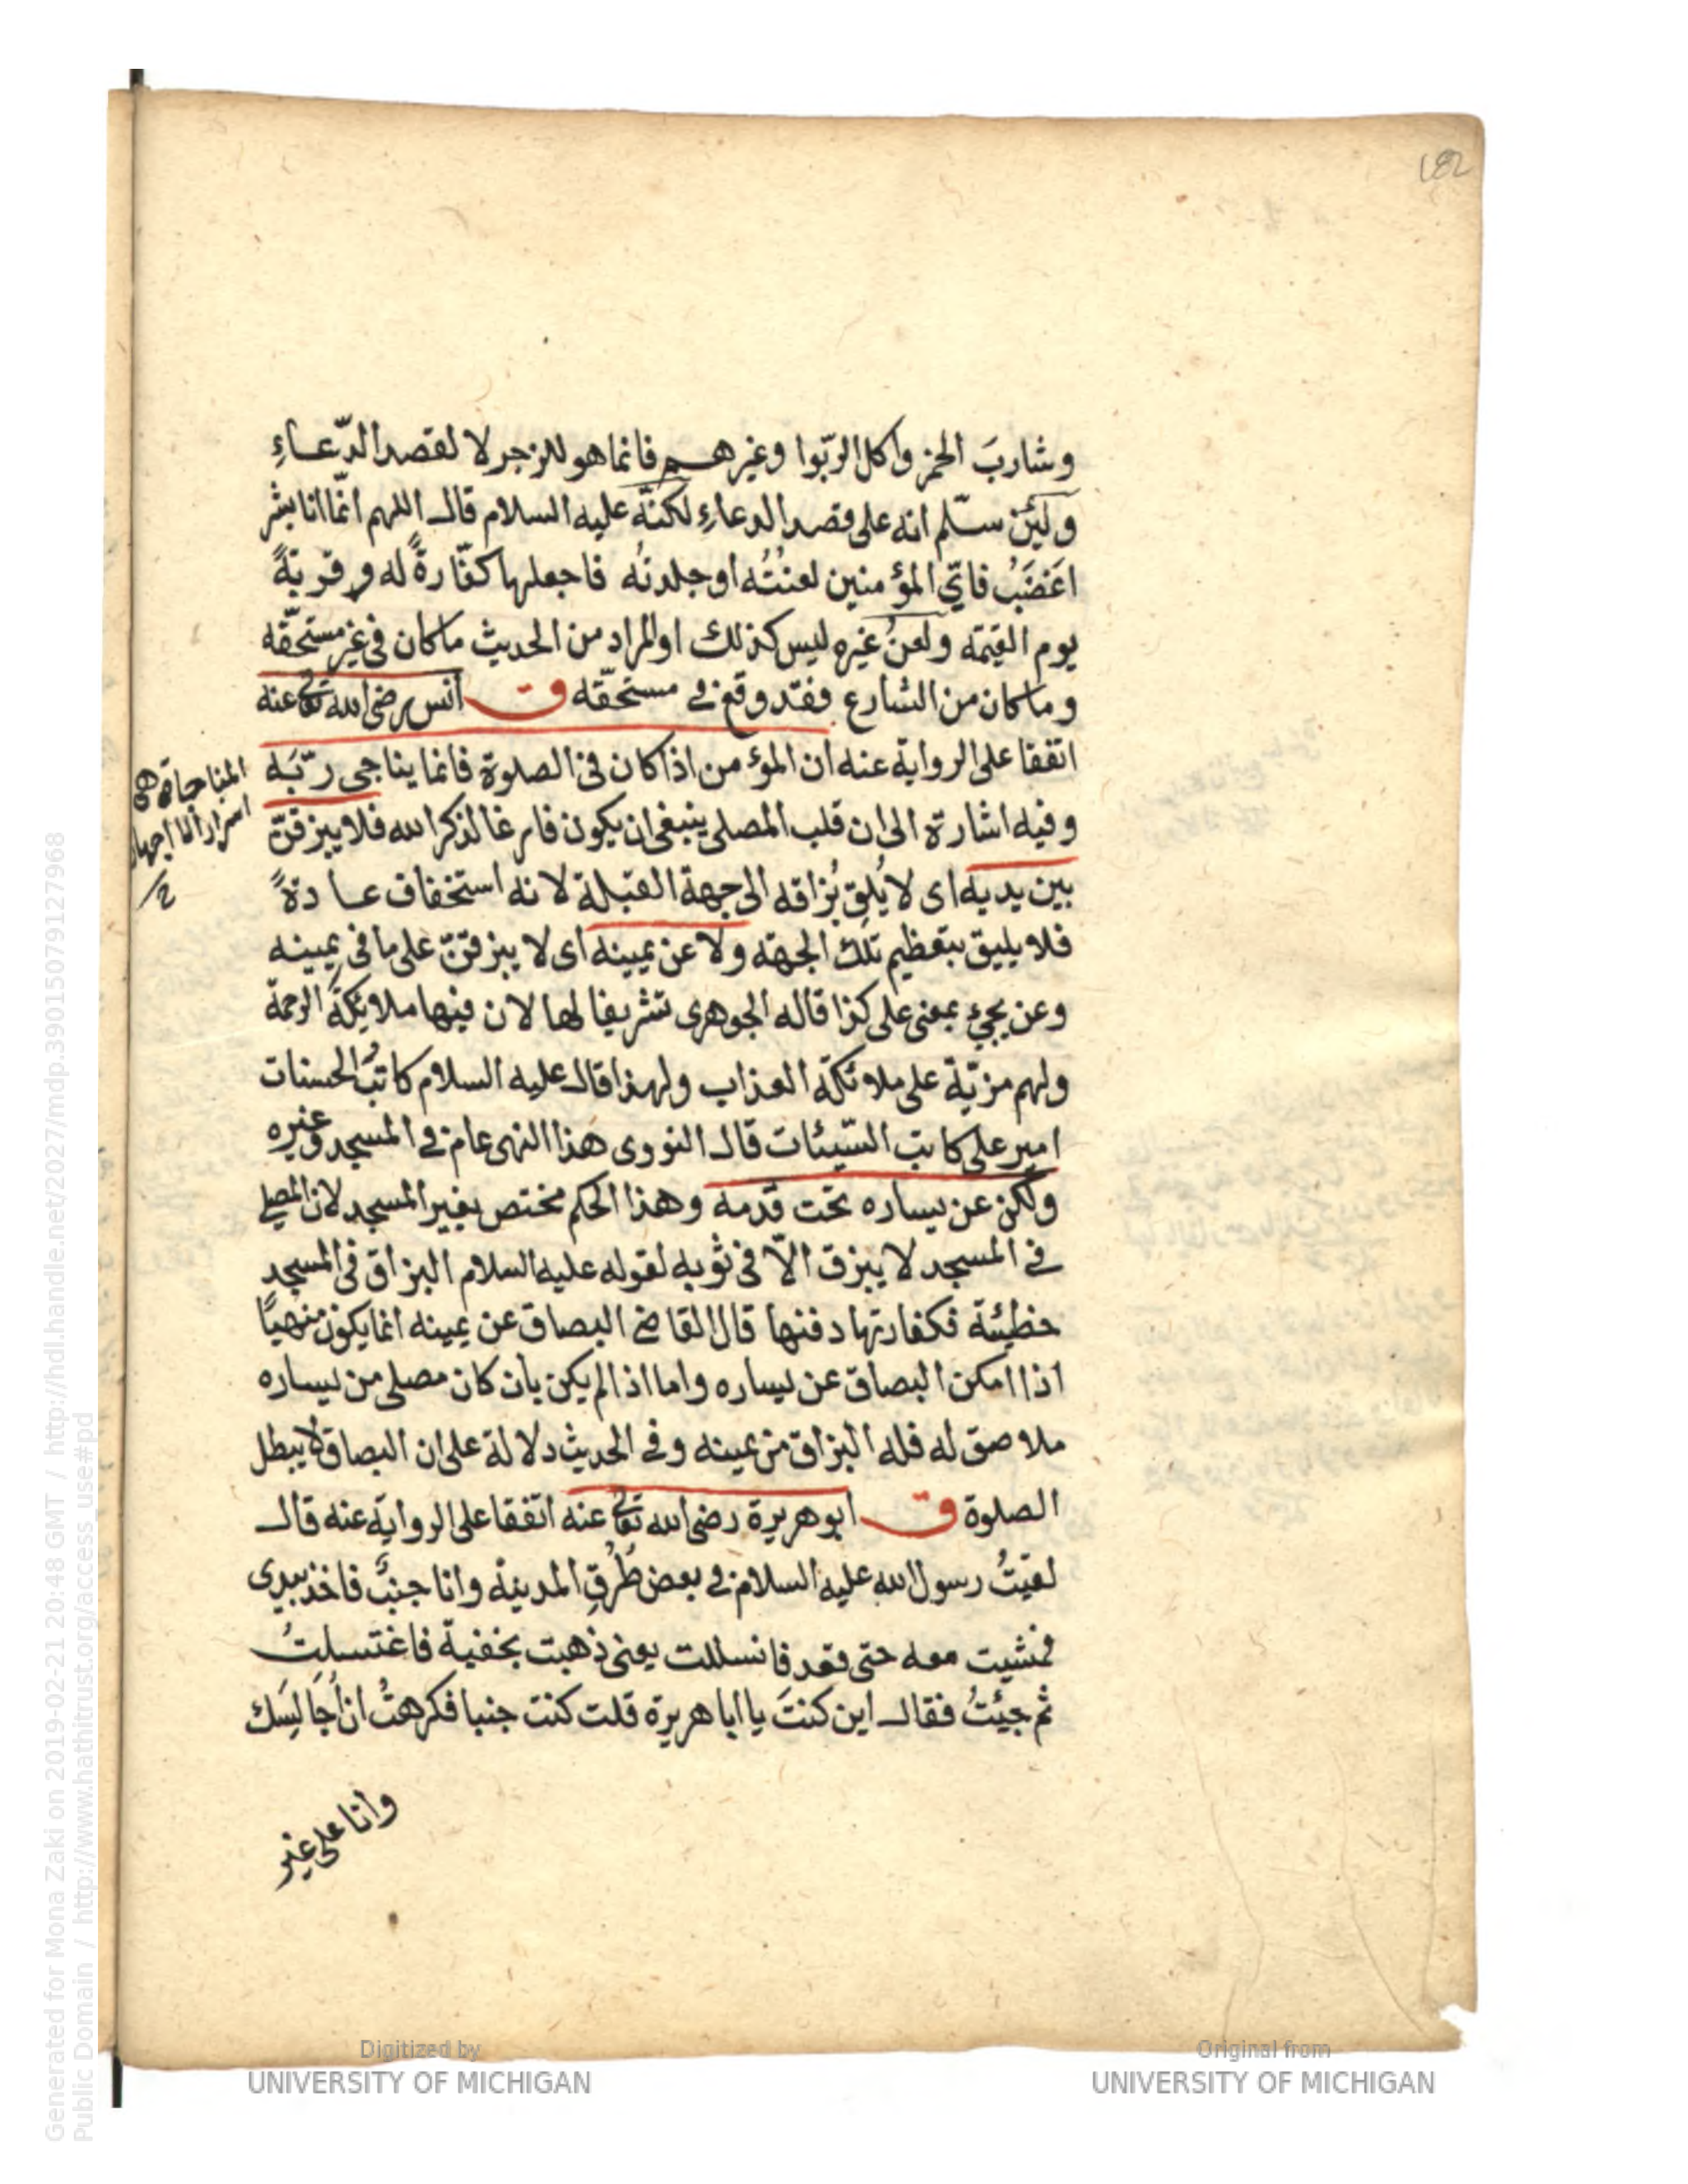 182
وشاربَ الخمر واكل الربّوا وغيرهم فانما هو للزجر لا لقصد الدّعاءِ
ولئن سلّم انه على قصد الدعاءِ لكنّه عليه السلام قال اللهم انّما انا بشر
اَغضَبُ فايّ المؤمنين لعنتُه او جلدتُه فاجعلها كفّارةً له وقربةً
يوم القيمه ولعنُ غيره ليس كذلك او المراد من الحديث ما كان فى غير مستحقّه
وما كان من الشارع فقد وقع فى مستحقّه ق انس رضى الله تعالى عنه
اتفقا على الرواية عنه ان المؤمن اذا كان فى الصلوة فانما يناجى ربّه
وفيه اشارة الى ان قلب المصلى ينبغى ان يكون فارغا لذكر الله فلا يبزقنّ
بين يديه اى لا يُلقِ بُزاقه الى جهة القبلة لانه استخفاف عادةً
فلا يليق بتعظيم تلك الجهة ولا عن يمينه اى لا يبزقنّ على ما فى يمينه
وعن يجيء بمعنى على كذا قاله الجوهرى تشريفا لها لان فيها ملايكة الرحمة
ولهم مزيّة على ملائكة العذاب ولهذا قال عليه السلام كاتبُ الحسنات
امير على كاتب السّيئات قال النووى هذا النهى عام فى المسجد وغيره
ولكن عن يساره تحت قدمه وهذا الحكم مختص بغير المسجد لان المصلى
فى المسجد لا يبزق الّا فى ثوبه لقوله عليه السلام البزاق فى المسجد
خطيئة فكفارتها دفنها قال القاضى البصاق عن يمينه انما يكون منهيًّا
اذا امكن البصاق عن يساره واما اذا لم يكن بان كان مصلى من يساره
ملاصق له فله البزاق من يمينه وفى الحديث دلالة على ان البصاق لا يبطل
الصلوة ق ابو هريرة رضى الله تعالى عنه اتفقا على الرواية عنه قال
لقيتُ رسول الله عليه السلام فى بعض طُرُقِ المدينة وانا جنبٌ فاخذ بيدى
فمشيت معه حتى قعد فانسللت يعنى ذهبت بخفية فاغتسلتُ
ثم جيئتُ فقال اين كنتَ يا ابا هريرة قلت كنت جنبا فكرهتُ ان اُجَالِسَك
وانا على غير
المناجاة
Generated for Mona Zaki on 2019-02-21 20:48 GMT / http://hdl.handle.net/2027/mdp.39015079127968
Public Domain / http://www.hathitrust.org/access_use#pd
Digitized by
UNIVERSITY OF MICHIGAN
Original from
UNIVERSITY OF MICHIGAN